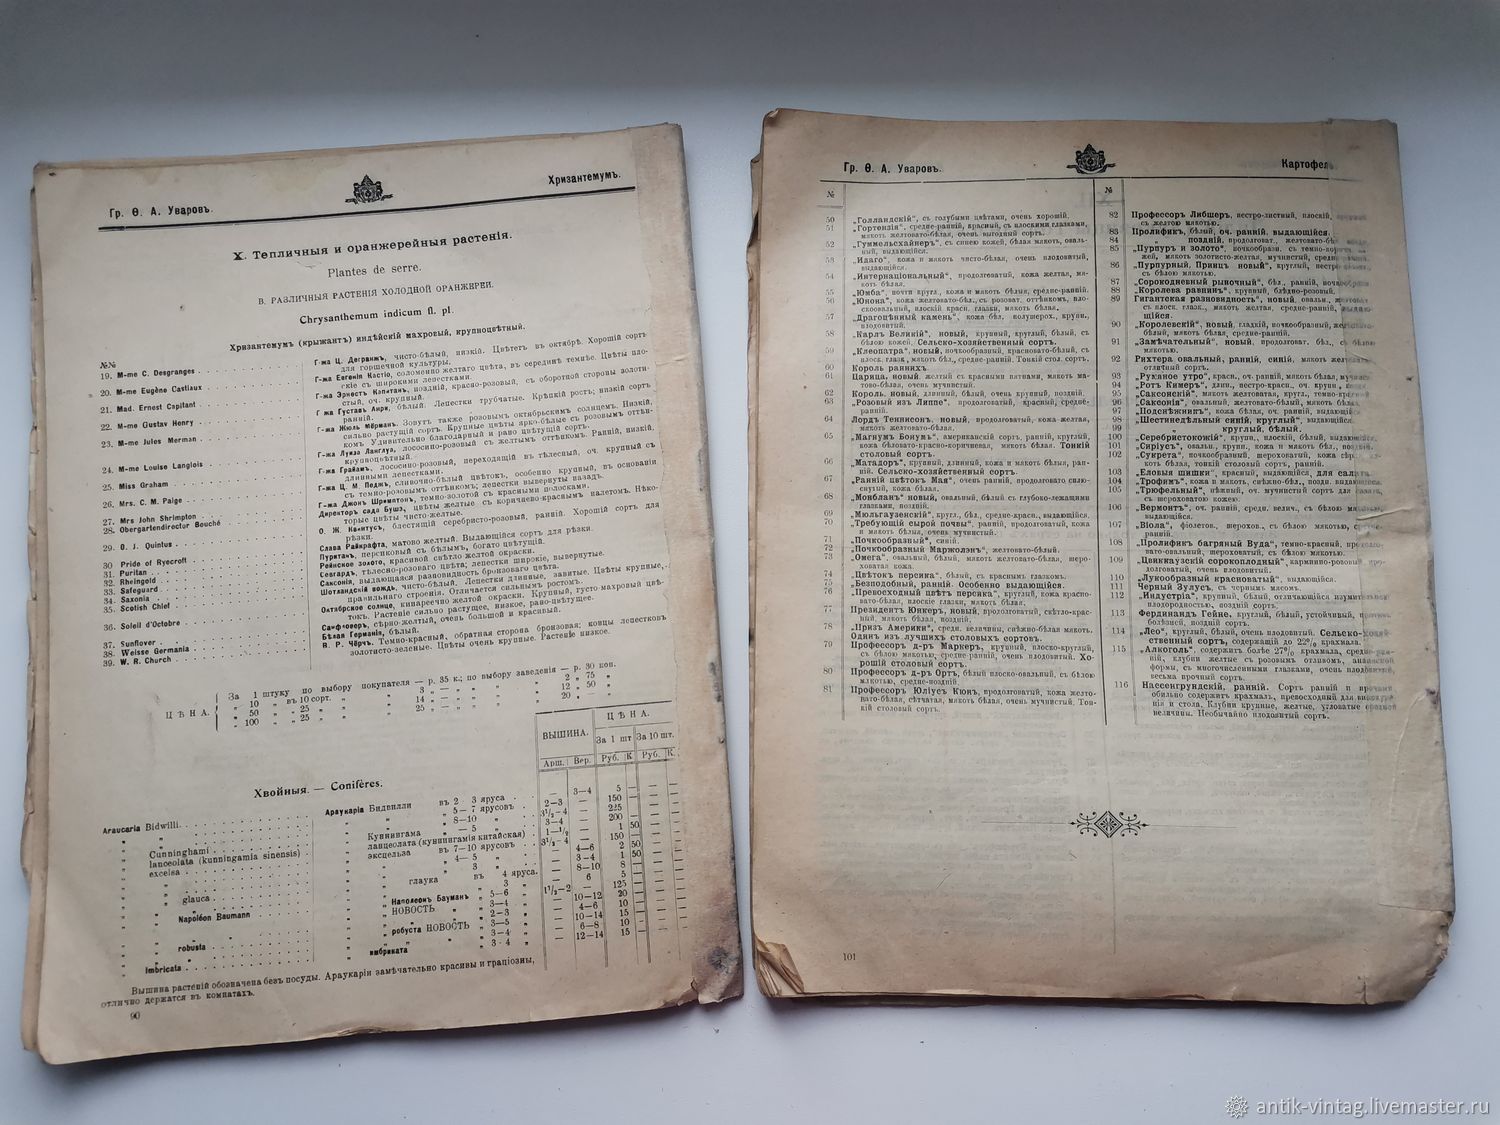 Гр. Ѳ. А. Уваровъ.
Хризантемумъ.
X. Тепличныя и оранжерейныя растенія.
Plantes de serre.
В. РАЗЛИЧНЫЯ РАСТЕНІЯ ХОЛОДНОЙ ОРАНЖЕРЕИ.
Chrysanthemum indicum fl. pl.
Хризантемумъ (крыжантъ) индѣйскій махровый, крупноцвѣтный.
№№
19. M-me C. Desgranges
Г-жа Ц. Дегранжъ, чисто-бѣлый, низкій. Цвѣтетъ въ октябрѣ. Хорошій сортъ
для горшечной культуры.
20. M-me Eugène Castiaux
Г-жа Евгенія Кастіо, соломенно желтаго цвѣта, въ серединѣ темнѣе. Цвѣты плоскіе съ широкими лепестками.
21. Mad. Ernest Capitant
Г-жа Эрнестъ Капитанъ, поздній, красно-розовый, съ оборотной стороны золотистый, оч. крупный.
22. M-me Gustav Henry
Г жа Густавъ Анри, бѣлый. Лепестки трубчатые. Крѣпкій ростъ; низкій сортъ
ранній.
23. M-me Jules Merman
Г-жа Жюль Мёрманъ. Зовутъ также розовымъ октябрьскимъ солнцемъ. Низкій,
сильно растущій сортъ. Крупные цвѣты ярко-бѣлые съ розовымъ оттѣнкомъ. Удивительно благодарный и рано цвѣтущій сортъ.
24. M-me Louise Langlois
Г-жа Луиза Ланглуа, лососино-розовый съ желтымъ оттѣнкомъ. Ранній, низкій,
крупноцвѣтный.
25. Miss Graham
Г-жа Грайамъ, лососино-розовый, переходящій въ тѣлесный, оч. крупный съ
длинными лепестками.
26. Mrs. C. M. Paige
Г-жа Ц. М. Педжъ, сливочно-бѣлый цвѣтокъ, особенно крупный, въ основаніи
съ темно-розовымъ оттѣнкомъ; лепестки вывернуты назадъ.
27. Mrs John Shrimpton
Г-жа Джонъ Шримптонъ, темно-золотой съ красными полосками.
28. Obergartendirector Bouché
Директоръ сада Бушэ, цвѣты желтые съ коричнево-краснымъ налетомъ. Нѣкоторые цвѣты чисто-желтые.
29. O. J. Quintus
О. Ж. Квинтусъ, блестящій серебристо-розовый, ранній. Хорошій сортъ для
рѣзки.
30 Pride of Ryecroft
Слава Райкрафта, матово желтый. Выдающійся сортъ для рѣзки.
31. Puritan
Пуританъ, персиковый съ бѣлымъ, богато цвѣтущій.
32. Rheingold
Рейнское золото, красивой свѣтло желтой окраски.
33. Safeguard
Севгардъ, тѣлесно-розоваго цвѣта; лепестки широкіе, вывернутые.
34. Saxonia
Саксонія, выдающаяся разновидность бронзоваго цвѣта.
35. Scotish Chief
Шотландскій вождь, чисто-бѣлый. Лепестки длинные, завитые. Цвѣты крупные,
правильнаго строенія. Отличается сильнымъ ростомъ.
36. Soleil d'Octobre
Октябрское солнце, канареечно желтой окраски. Крупный, густо махровый цвѣтокъ. Растеніе сильно растущее, низкое, рано-цвѣтущее.
37. Sunflover
Санфловеръ, сѣрно-желтый, очень большой и красивый.
38. Weisse Germania
Бѣлая Германія, бѣлый.
39. W. R. Church
В. Р. Чёрчъ. Темно-красный, обратная сторона бронзовая; концы лепестковъ
золотисто-зеленые. Цвѣты очень крупные. Растеніе низкое.
ЦѢНА.
За 1 штуку по выбору покупателя — р. 35 к.; по выбору заведенія — р. 30 коп.
„ 10 „ въ 10 сорт. „ „ 3 „ — „ „ „ „ 2 „ 75 „
„ 50 „ „ 25 „ „ „ 14 „ — „ „ „ „ 12 „ 50 „
„ 100 „ „ 25 „ „ „ 25 „ — „ „ „ „ 20 „ — „
ВЫШИНА.
ЦѢНА.
За 1 шт
За 10 шт.
Арш. Вер. Руб. К Руб. К.
Хвойныя. — Conifères.
Araucaria Bidwilli
Араукарія Бидвилли въ 2 3 яруса
„ „ 5— 7 ярусовъ
„ „ 8—10 „
„ Cunninghami
„ Куннингама „ — 5 „
„ lanceolata (kunningamia sinensis)
„ ланцеолата (куннингамія китайская)
„ excelsa
„ эксцельза въ 7—10 ярусовъ
„ „ 4— 5 „
„ „ 3 „
„ „ glauca
„ „ глаука въ 4 яруса.
„ „ 3 „
„ Napoléon Baumann
„ „ Наполеонъ Бауманъ „ 5—6 „
„ „ НОВОСТЬ „ 3—4 „
„ „ „ 2—3 „
„ „ robusta
„ „ робуста НОВОСТЬ „ 3—5 „
„ „ „ 3—4 „
„ imbricata
„ имбриката „ 3 - 4 „
Вышина растеній обозначена безъ посуды. Араукаріи замѣчательно красивы и граціозны,
отлично держатся въ комнатахъ.
90
Гр. Ѳ. А. Уваровъ.
Картофель
№
50 „Голландскій“, съ голубыми цвѣтами, очень хорошій.
51 „Гортензія“, средне-ранній, красный, съ плоскими глазками,
мякоть желтовато-бѣлая, очень выгодный сортъ.
52 „Гуммельсхайнеръ“, съ синею кожей, бѣлая мякоть, овальный, выдающійся.
53 „Идаго“, кожа и мякоть чисто-бѣлая, очень плодовитый,
выдающійся.
54 „Интернаціональный“, продолговатый, кожа желтая, мякоть бѣлая.
55 „Юмба“, почти кругл., кожа и мякоть бѣлыя, средне-ранній.
56 „Юнона“, кожа желтовато-бѣл., съ розоват. оттѣнкомъ, плоскоовальный, плоскій красн. глазки, мякоть бѣлая.
57 „Драгоцѣнный камень“, кожа бѣл., полушерох., крупн.,
плодовитый.
58 „Карлъ Великій“, новый, крупный, круглый, бѣлый, съ
бѣлою кожей. Сельско-хозяйственный сортъ.
59 „Клеопатра“, новый, почкообразный, красновато-бѣлый, съ
плоск. глазк., мякоть бѣл., средне-ранній. Тонкій стол. сортъ.
60 Король раннихъ.
61 Царица, новый, желтый съ красными пятнами, мякоть матово-бѣлая, очень мучнистый.
62 Король, новый, длинный, бѣлый, очень крупный, поздній.
63 „Розовый изъ Липпе“, продолговатый, красный, средне-ранній.
64 Лордъ Теннисонъ, новый, продолговатый, кожа желтая,
мякоть бѣлая.
65 „Магнумъ Бонумъ“, американскій сортъ, ранній, круглый,
кожа бѣловато-красно-коричневая, мякоть бѣлая. Тонкій
столовый сортъ.
66 „Матадоръ“, крупный, длинный, кожа и мякоть бѣлыя, ранній. Сельско-хозяйственный сортъ.
67 „Ранній цвѣтокъ Мая“, очень ранній, продолговато сплюснутый, кожа бѣлая.
68 „Монбланъ“ новый, овальный, бѣлый съ глубоко-лежащими
глазками, поздній.
69 „Мюльгаузенскій“, кругл., бѣл., средне-красн., выдающійся.
70 „Требующій сырой почвы“, ранній, продолговатый, кожа
и мякоть бѣлая, очень мучнистый.
71 „Почкообразный“, синій.
72 „Почкообразный Маржолэнъ“, желтовато-бѣлый.
73 „Омега“, овальный, бѣлый, мякоть желтовато-бѣлая, шероховатая кожа.
74 „Цвѣтокъ персика“, бѣлый, съ краснымъ глазкомъ.
75 „Безподобный, ранній. Особенно выдающійся.
76 „Превосходный цвѣтъ персика“, круглый, кожа красновато-бѣлая, плоскіе глазки, мякоть бѣлая.
77 Президентъ Юнкеръ, новый, продолговатый, свѣтло-красный, мякоть бѣлая, поздній.
78 „Призъ Америки“, средн. величины, снѣжно-бѣлая мякоть.
Одинъ изъ лучшихъ столовыхъ сортовъ.
79 Профессоръ д-ръ Маркеръ, крупный, плоско-круглый,
съ бѣлою мякотью, средне-ранній, очень плодовитый. Хорошій столовый сортъ.
80 Профессоръ д-ръ Ортъ, бѣлый плоско-овальный, съ бѣлою
мякотью, средне-поздній.
81 Профессоръ Юліусъ Кюнъ, продолговатый, кожа желтовато-бѣлая, сѣтчатая, мякоть бѣлая, очень мучнистый. Тонкій столовый сортъ.
№
82 Профессоръ Либшеръ, пестро-листный, плоскій,
съ желтою мякотью.
83 Пролификъ, бѣлый, оч. ранній, выдающійся.
84 „ поздній, продолговат., желтовато-
85 „Пурпуръ и золото“, почкообразн., съ темно-
жей, мякоть золотисто-желтая, мучнистый,
86 „Пурпурный Принцъ новый“, круглый,
съ бѣлою мякотью.
87 „Сорокодневный рывочный“, бѣл., ранній,
88 „Королева равнинъ“, крупный, блѣдно-розовый.
89 Гигантская разновидность“, новый, овальн.,
плоск. глазк., мякоть желтая, средне-ранній,
щійся.
90 „Королевскій“, новый, гладкій, почкообразный,
бѣлый, мякоть бѣлая, средне-ранній.
91 „Замѣчательный“, новый, продолговат. бѣл., съ
мякотью.
92 Рихтера овальный, ранній, синій, мякоть
отличный сортъ.
93 „Румяное утро“, красн., оч. ранній, мякоть бѣлая,
94 „Ротъ Кимеръ“, длин., пестро-красн., оч. крупн.,
95 „Саксонскій“, мякоть желтоватая, кругл.,
96 „Саксонія“, овальный, желтоватый, мякоть бѣлая,
97 „Подснѣжникъ“, кожа бѣлая, оч. ранній, выдающійся
98 „Шестинедѣльный синій, круглый“,
99 „ круглый, бѣлый.
100 „Серебристокожій“, крупн., плоскій, бѣлый,
101 „Сиріусъ“, овальн., крупн., кожа и мякоть бѣл.,
102 „Сукрета“, почкообразный, шероховатый, кожа
коть бѣлая, тонкій столовый сортъ, ранній.
103 „Еловыя шишки“, красный, выдающійся, для
104 „Трофимъ“, кожа и мякоть, снѣжно-бѣл., поздн.
105 „Трюфельный“, нѣжный, оч. мучнистый сортъ для
съ шероховатою кожею.
106 „Вермонтъ“, оч. ранній, средн. велич., съ бѣлою
выдающійся.
107 „Віола“, фіолетов., шерохов., съ бѣлою мякотью,
ранній.
108 „Пролификъ багряный Вуда“, темно-красный,
вато-овальный, шероховатый, съ бѣлою мякотью.
109 „Цвиккаузскій сорокоплодный“, карминно-розов.,
долговатый, очень плодовитый.
110 „Лукообразный красноватый“, выдающійся.
111 Черный Зулусъ, съ чернымъ мясомъ.
112 „Индустріа“, крупный, бѣлый, отличающійся
плодородностью, поздній сортъ.
113 Фердинандъ Гейне, круглый, бѣлый, устойчивый,
болѣзней, поздній сортъ.
114 „Лео“, круглый, бѣлый, очень плодовитый. Сельско-
ственный сортъ, содержащій до 22% крахмала.
115 „Алкоголь“, содержитъ болѣе 27% крахмала,
ній, клубни желтые съ розовымъ отливомъ,
формы, съ многочисленными глазками, очень
весьма прочный сортъ.
116 Нассенгрундскій, ранній. Сортъ ранній и
обильно содержитъ крахмалъ, превосходный для
нія и стола. Клубни крупные, желтые, угловатые
величины. Необычайно плодовитый сортъ.
101
antik-vintag.livemaster.ru